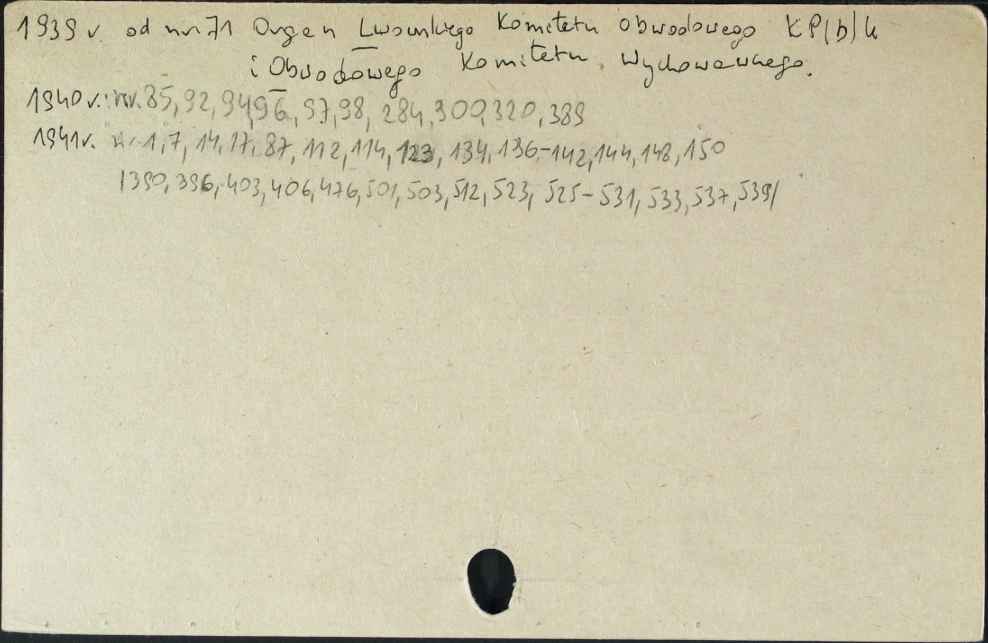 1939 r. od nru 71 Organ Lwowskiego Komitetu Obwodowego KP(b)U
i Obwodowego Komitetu Wykonawczego.
1940 r.: nr. 85, 92, 94, 96, 97, 98, 284, 300, 320, 389
1941 r. nr 1, 7, 14, 17, 87, 112, 114, 123, 134, 136-142, 144, 148, 150
1390, 396, 403, 406, 476, 501, 503, 512, 523, 525-531, 533, 537, 539/